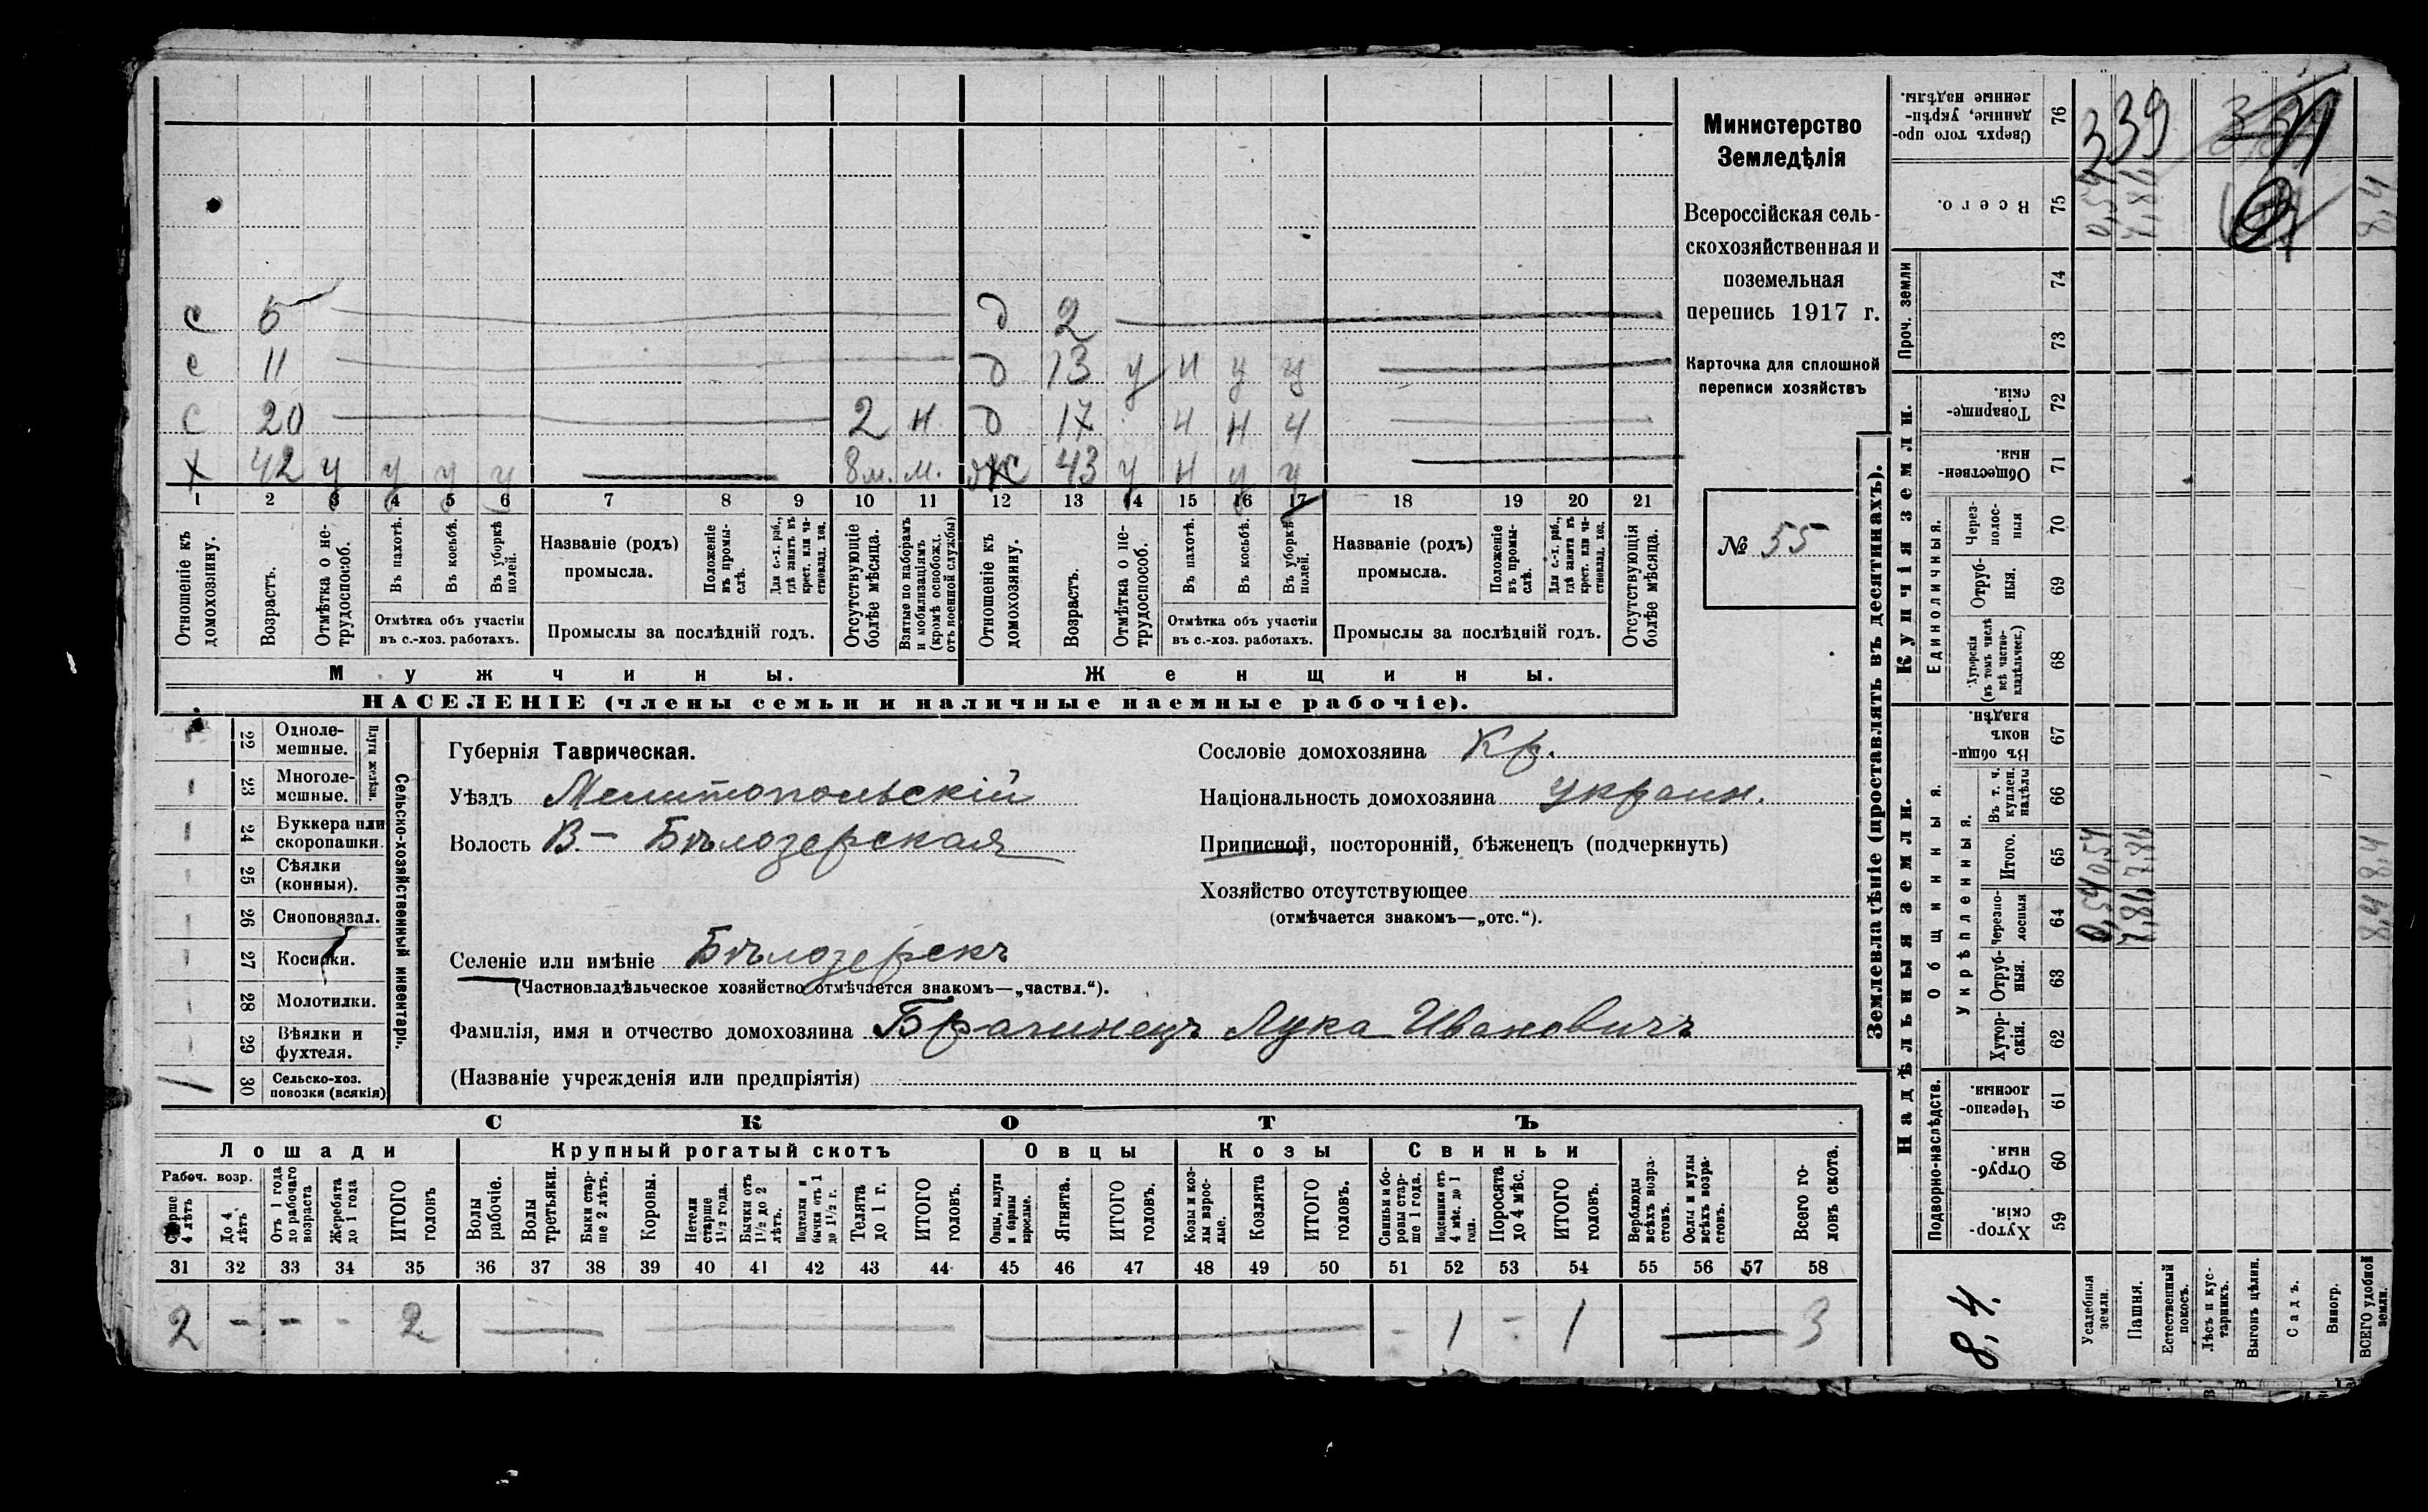 Министерство
Земледѣлія
Всероссійская сель-
скохозяйственная и
поземельная
перепись 1917 г.
Карточка для сплошной
переписи хозяйствъ
№ 55
с 5 д 2
с 11 д 13 у н у у
с 20 2 н. д 17 н н ч
х 42 у у у у 8 м. м. ж 43 у н у у
1 2 3 4 5 6 7 8 9 10 11 12 13 14 15 16 17 18 19 20 21
Отношеніе къ домохозяину.
Возрастъ.
Отмѣтка о не-трудоспособ.
Въ пахотѣ.
Въ косьбѣ.
Въ уборкѣ полей.
Отмѣтка объ участіи въ с.-хоз. работахъ.
Названіе (родъ) промысла.
Положеніе въ промы-слѣ.
Для с.-х. раб., гдѣ занятъ въ крест. или ча-стновлад. хоз.
Промыслы за послѣдній годъ.
Отсутствующіе болѣе мѣсяца.
Взятые по наборамъ и мобилизаціямъ (кромѣ освобожд. отъ военной службы)
Отношеніе къ домохозяину.
Возрастъ.
Отмѣтка о не-трудоспособ.
Въ пахотѣ.
Въ косьбѣ.
Въ уборкѣ полей.
Отмѣтка объ участіи въ с.-хоз. работахъ.
Названіе (родъ) промысла.
Положеніе въ промы-слѣ.
Для с.-х. раб., гдѣ занята въ крест. или ча-стновлад. хоз.
Промыслы за послѣдній годъ.
Отсутствующія болѣе мѣсяца.
Мужчины. Женщины.
НАСЕЛЕНІЕ (члены семьи и наличные наемные рабочіе).
Сельско-хозяйственный инвентарь.
Плуги желѣзн.
22 Одноле-мешные.
23 Многоле-мешные.
24 Буккера или скоропашки.
25 Сѣялки (конныя).
26 Сноповязал.
27 Косилки.
28 Молотилки.
29 Вѣялки и фухтеля.
1 30 Сельско-хоз. повозки (всякія)
Губернія Таврическая.
Уѣздъ Мелитопольскій
Волость В.- Бѣлозерская
Сословіе домохозяина Кр.
Національность домохозяина украин.
Приписной, посторонній, бѣженецъ (подчеркнуть)
Хозяйство отсутствующее
(отмѣчается знакомъ—„отс.“).
Селеніе или имѣніе Бѣлозерскъ
(Частновладѣльческое хозяйство отмѣчается знакомъ—„частвл.“).
Фамилія, имя и отчество домохозяина Брагинецъ Лука Ивановичъ
(Названіе учрежденія или предпріятія)
СКОТЪ
Лошади Крупный рогатый скотъ Овцы Козы Свиньи
Рабоч. возр.
Старше 4 лѣтъ
До 4 лѣтъ
Отъ 1 года до рабочаго возраста
Жеребята до 1 года
ИТОГО головъ
Волы рабочіе.
Волы третьяки.
Быки стар-ше 2 лѣтъ.
Коровы.
Нетели старше 1½ года.
Бычки отъ 1½ до 2 лѣтъ.
Подтелки и бычки отъ 1 до 1½ г.
Телята до 1 г.
ИТОГО головъ.
Овцы, валухи и бараны взрослые.
Ягнята.
ИТОГО головъ.
Козы и коз-лы взрос-лые.
Козлята
ИТОГО головъ.
Свиньи и бо-ровы стар-ше 1 года.
Подсвинки отъ 4 мѣс. до 1 года.
Поросята до 4 мѣс.
ИТОГО головъ.
Верблюды всѣхъ возра-стовъ.
Ослы и мулы всѣхъ возра-стовъ.
Всего го-ловъ скота.
31 32 33 34 35 36 37 38 39 40 41 42 43 44 45 46 47 48 49 50 51 52 53 54 55 56 57 58
2 - - - 2 - 1 - 1 3
Землевладѣніе (проставлять въ десятинахъ).
Надѣльныя земли. Купчія земли. Проч. земли
Подворно-наслѣдств. Общинныя. Укрѣпленныя. Единоличныя.
59 Хутор-скія.
60 Отруб-ныя.
61 Черезпо-лосныя
62 Хутор-скія.
63 Отруб-ныя.
64 Черезпо-лосныя 0,54 7,86 8,4
65 Итого. 0,54 7,86 8,4
66 Въ т. ч. куплен. надѣлы
67 Въ общин-номъ владѣн.
68 Хуторскія (въ томъ числѣ всѣ частно-владѣльческ.)
69 Отруб-ныя.
70 Через-полос-ныя
71 Обществен-ныя.
72 Товарище-скія.
73
74
75 Всего. 0,54 7,86 8,4
76 Сверхъ того про-данные, укрѣп-ленные надѣлы.
339
8,4.
Усадебныя земли.
Пашня.
Естественный покосъ.
Лѣсъ и кус-тарникъ.
Выгонъ цѣлин.
Садъ.
Виногр.
ВСЕГО удобной земли.